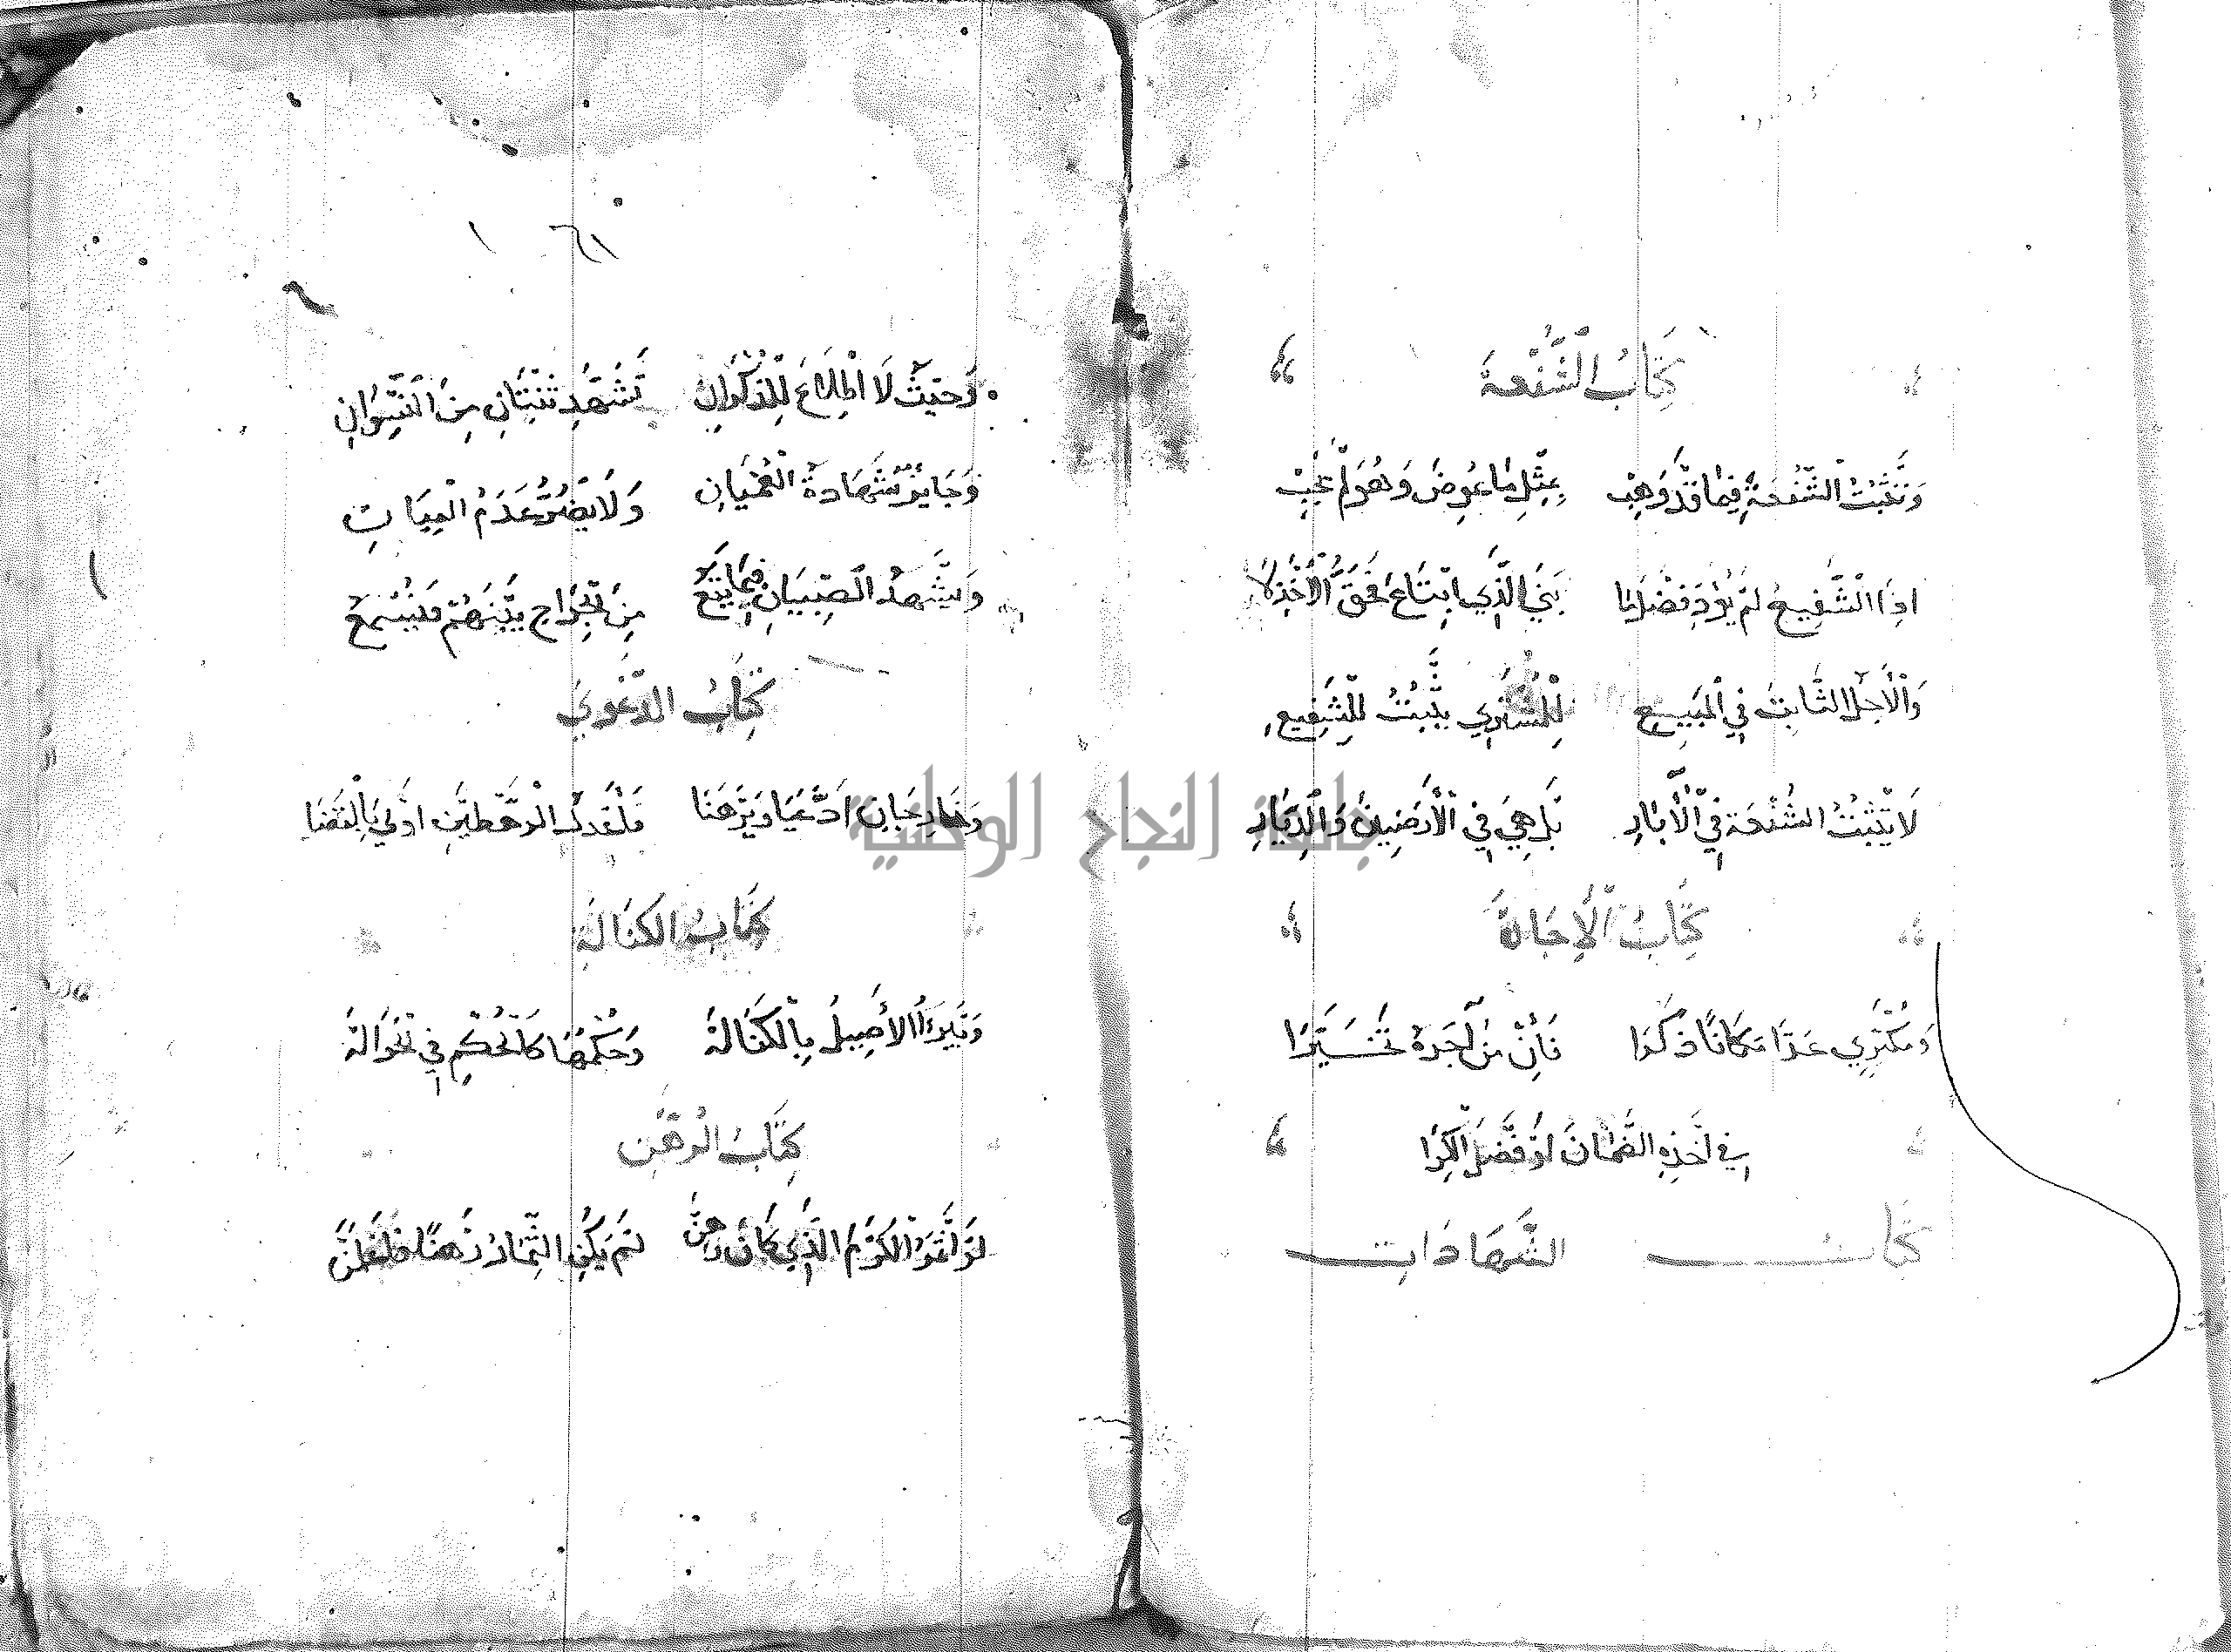 كِتَابُ الشُّفْعَة
وَتَثْبُتُ الشُّفْعَةُ فِيمَا قَدْ وُهِبْ بِمِثْلِ مَا عُوِّضَ وَهُوَ لَمْ يَجِبْ
اِذَا الشَّفِيعُ لَمْ يُؤَدِّ فَضْلَ مَا بَنَى الَّذِي ابْتَاعَ فَحَقُّ الْأَخْذِ لَا
وَالْأَجَلُ الثَّابِتُ فِي الْمَبِيعِ لِلْمُشْتَرِي يَثْبُتُ لِلشَّفِيعِ
لَا يَثْبُتُ الشُّفْعَة فِي الْأَبْارِ بَلْ هِيَ فِي الْأَرَضِينَ وَالدِّيَارِ
كِتَابُ الْإِجَارَةِ
وَمُكْتَرِي عَدَّا مَكَانًا ذُكِرَا فَإِنَّ مَنْ آجَرَهُ تَخَيَّرَا
فِي أَخْذِهِ الضَّمَانَ اَوْ فَضْلَ الْكِرَا
كتاب الشَّهَادَات
وَحَيْثُ لَا اطِّلَاعَ لِلذُّكْرَانِ تَشْهَدُ ثِنْتَانِ مِنَ النِّسْوَانِ
وَجَايِزٌ شَهَادَةُ الْعُمْيَانِ وَلَا يَضُرُّ عَدَمُ الْعِيَانِ
وَيَشْهَدُ الصِّبْيَانُ فِيمَا يَقَعُ مِنَ الْجِرَاحِ بَيْنَهُمْ فَيُسْمَعُ
كِتَابُ الدَّعْوَى
وَخَارِجَانِ ادَّعَيَا وَبَرْهَنَا فَأَعْدَلُ الرَّهْطَيْنِ اَوْلَى بِالْقَضَا
كِتَابُ الكَفَالَةِ
وَيَبْرَأُ الأَصِيلُ بِالْكَفَالَةْ وَحُكْمُهَا كَالْحُكْمِ فِي الْحَوَالَةْ
كِتَابُ الرَّهْنِ
لَوْ أَثْمَرَ الْكَرْمُ الَّذِي كَانَ رَهَنْ لَمْ يَكُنِ الثِّمَارُ رَهْنًا فَاعْلَمَنْ
جامعة النجاح الوطنية